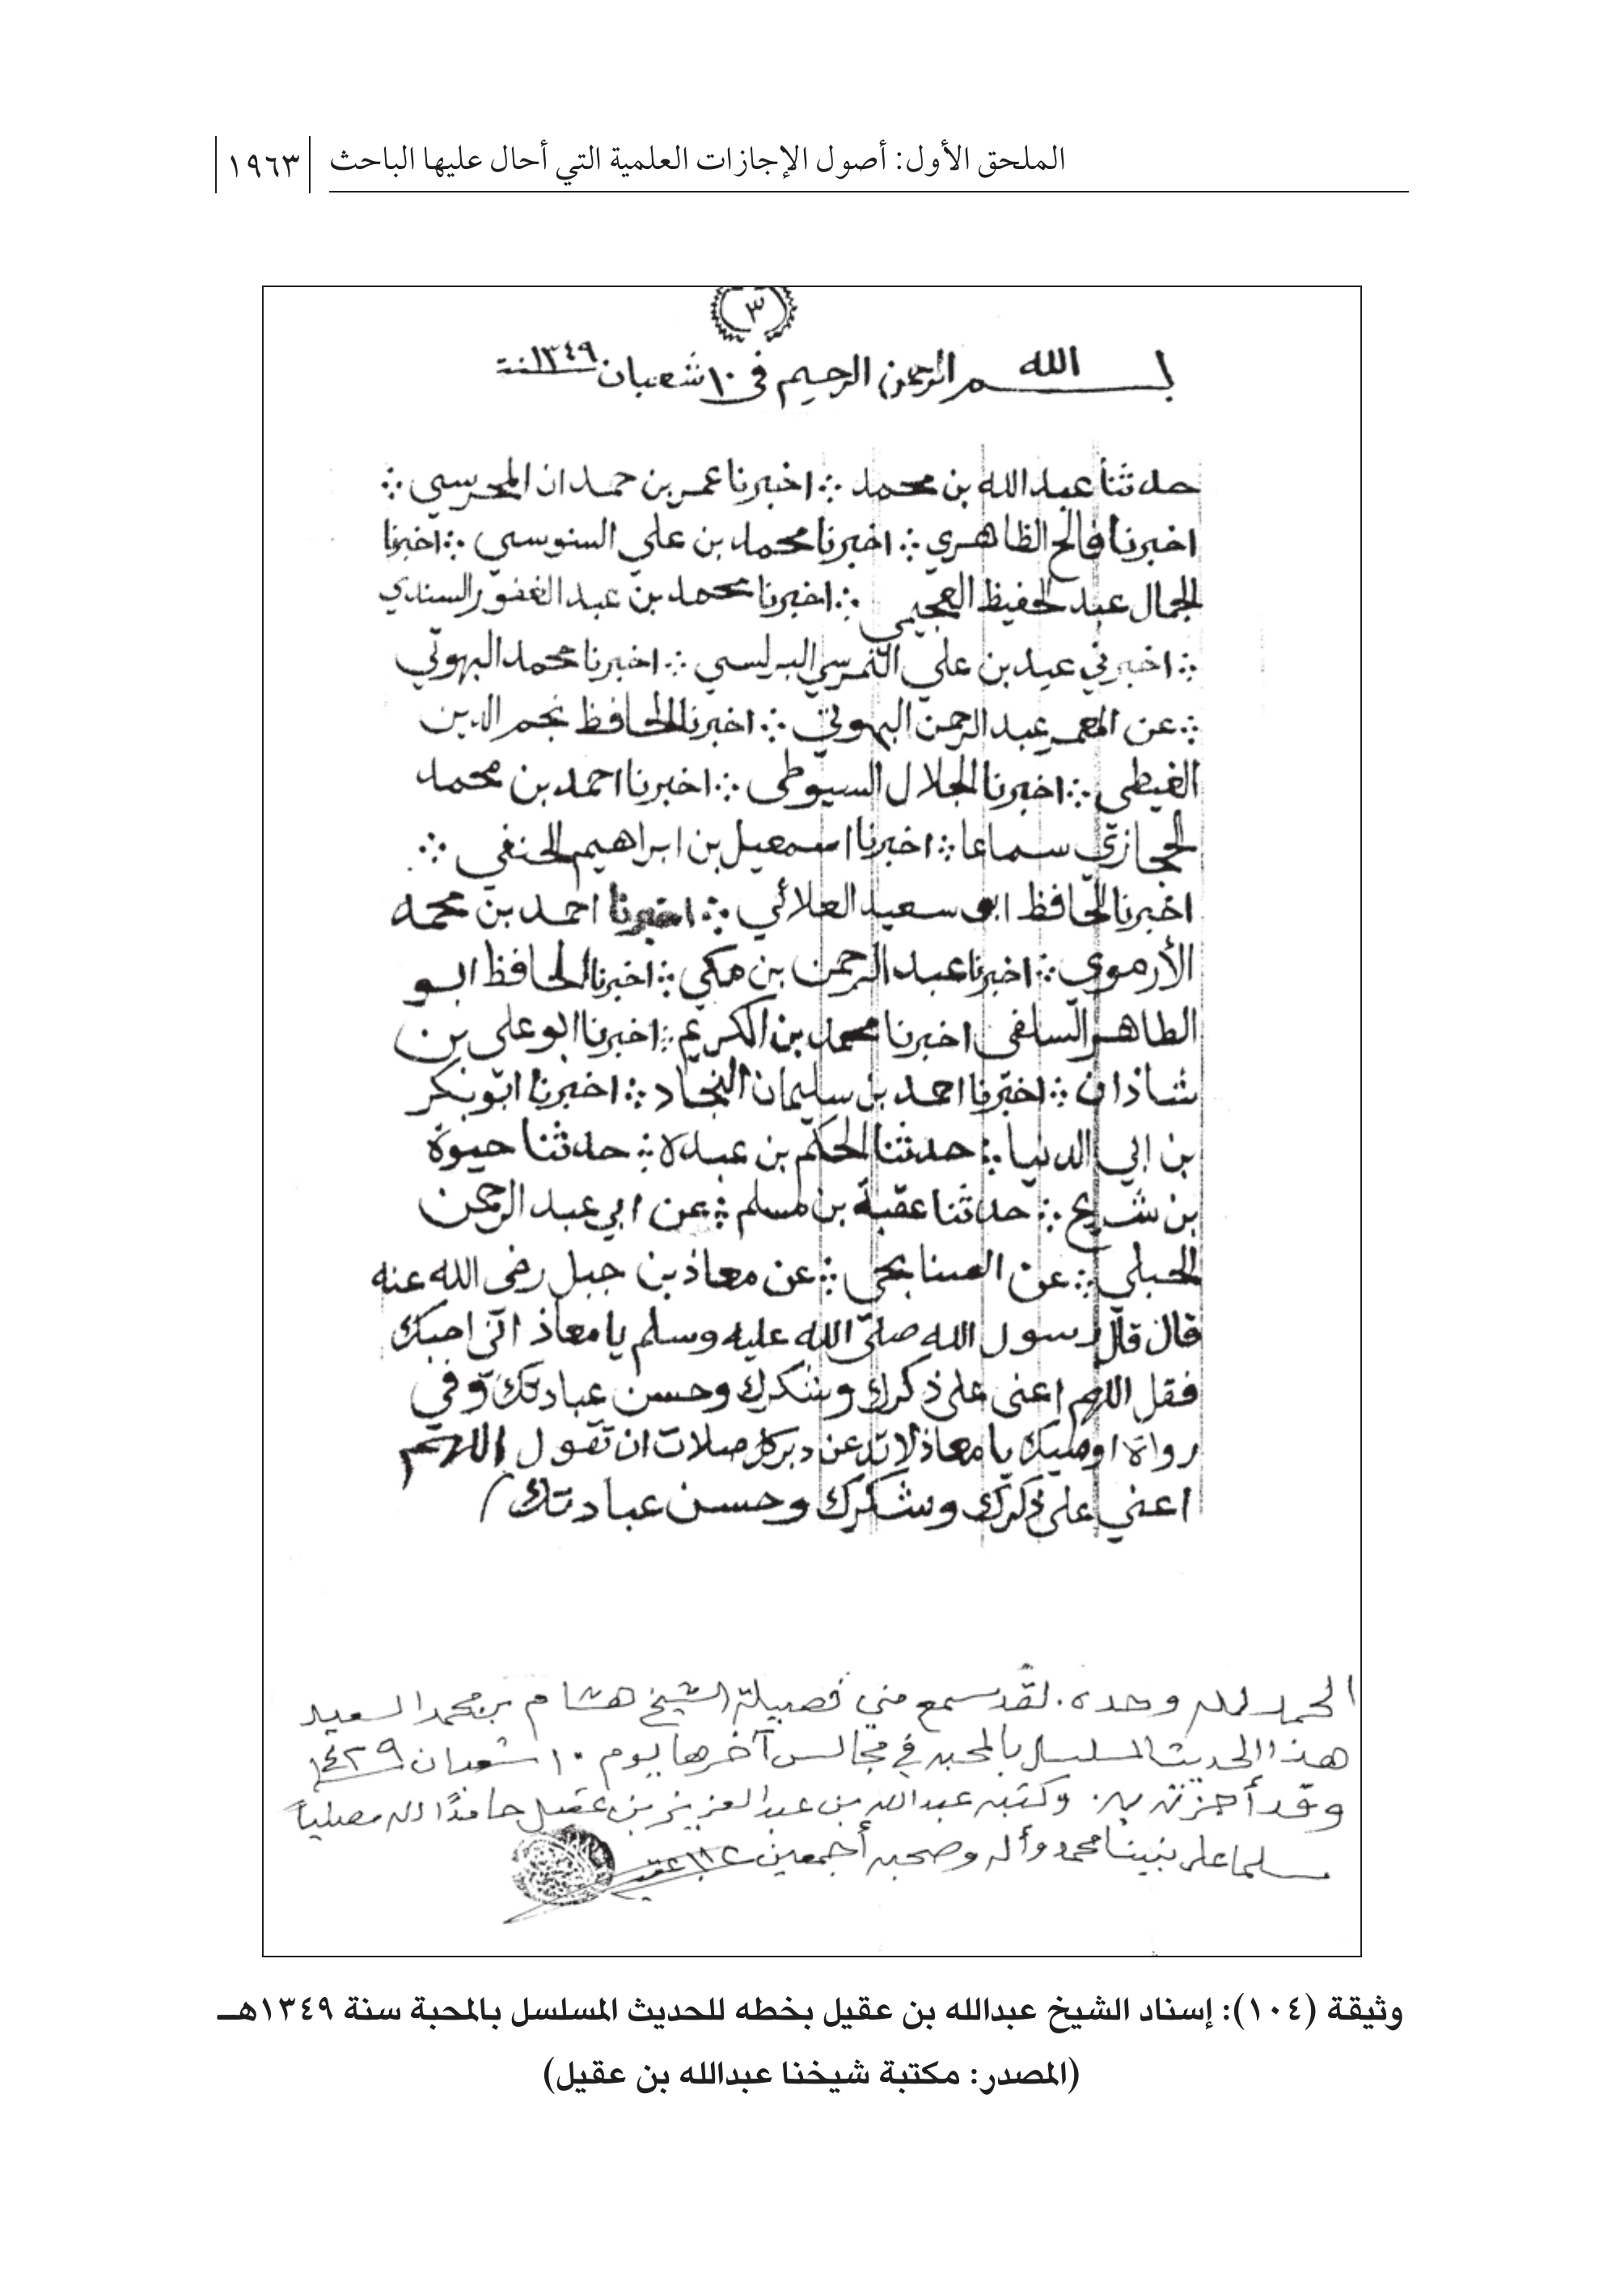 الملحق الأول: أصول الإجازات العلمية التي أحال عليها الباحث ١٩٦٣
٣
بسم الله الرحمن الرحيم في ١٠ شعبان ١٣٤٩ سنة
حدثنا عبد الله بن محمد ∴ اخبرنا عمر بن حمدان المحرسي ∴
اخبرنا فالح الظاهري ∴ اخبرنا محمد بن علي السنوسي ∴ اخبرنا
الجمال عبد الحفيظ العجيمي ∴ اخبرنا محمد بن عبد الغفور السندي
∴ اخبرني عيد بن علي النمرسي البرلسي ∴ اخبرنا محمد البهوتي
∴ عن المعمر عبد الرحمن البهوتي ∴ اخبرنا الحافظ نجم الدين
الغيطي ∴ اخبرنا الجلال السيوطي ∴ اخبرنا احمد بن محمد
الحجازي سماعا ∴ اخبرنا اسمعيل بن ابراهيم الحنفي ∴
اخبرنا الحافظ ابو سعيد العلائي ∴ اخبرنا احمد بن محمد
الأرموي ∴ اخبرنا عبد الرحمن بن مكي ∴ اخبرنا الحافظ ابو
الطاهر السلفي اخبرنا محمد بن الكريم ∴ اخبرنا ابو علي بن
شاذان ∴ اخبرنا احمد بن سليمان النجاد ∴ اخبرنا ابو بكر
بن ابي الدنيا ∴ حدثنا الحكم بن عبدة ∴ حدثنا حيوة
بن شريح ∴ حدثنا عقبة بن مسلم ∴ عن ابي عبد الرحمن
الحبلي ∴ عن الصنابحي ∴ عن معاذ بن جبل رضي الله عنه
قال قال رسول الله صلى الله عليه وسلم يا معاذ اني احبك
فقل اللهم اعني على ذكرك وشكرك وحسن عبادتك وفي
رواة اوصيك يا معاذ لا تدعن دبر كل صلات ان تقول اللهم
اعني على ذكرك وشكرك وحسن عبادتك /
الحمد لله وحده. لقد سمع مني فضيلة الشيخ هشام بن محمد السعيد
هذا الحديث المسلسل بالمحبة في مجالس آخرها يوم ١٠ شعبان ١٤٢٩
وقد أجزته به. وكتبه عبد الله بن عبد العزيز بن عقيل حامدًا لله مصلياً
مسلما على نبينا محمد وآله وصحبه أجمعين
وثيقة (١٠٤): إسناد الشيخ عبدالله بن عقيل بخطه للحديث المسلسل بالمحبة سنة ١٣٤٩هـ
(المصدر: مكتبة شيخنا عبدالله بن عقيل)